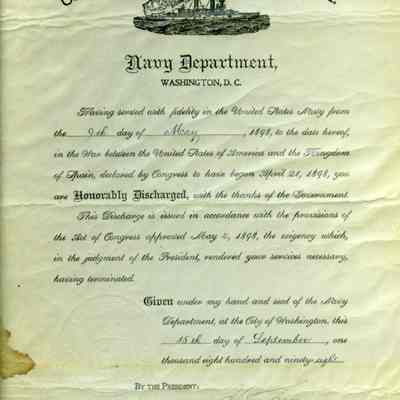 Navy Department,
WASHINGTON, D. C.
Having served with fidelity in the United States Navy from
the 9th day of May, 1898, to the date hereof,
in the War between the United States of America and the Kingdom
of Spain, declared by Congress to have begun April 21, 1898, you
are Honorably Discharged, with the thanks of the Government.
This Discharge is issued in accordance with the provisions of
the Act of Congress approved May 4, 1898, the exigency which,
in the judgment of the President, rendered your services necessary,
having terminated.
Given under my hand and seal of the Navy
Department, at the City of Washington, this
15th day of September, one
thousand eight hundred and ninety-eight.
BY THE PRESIDENT: